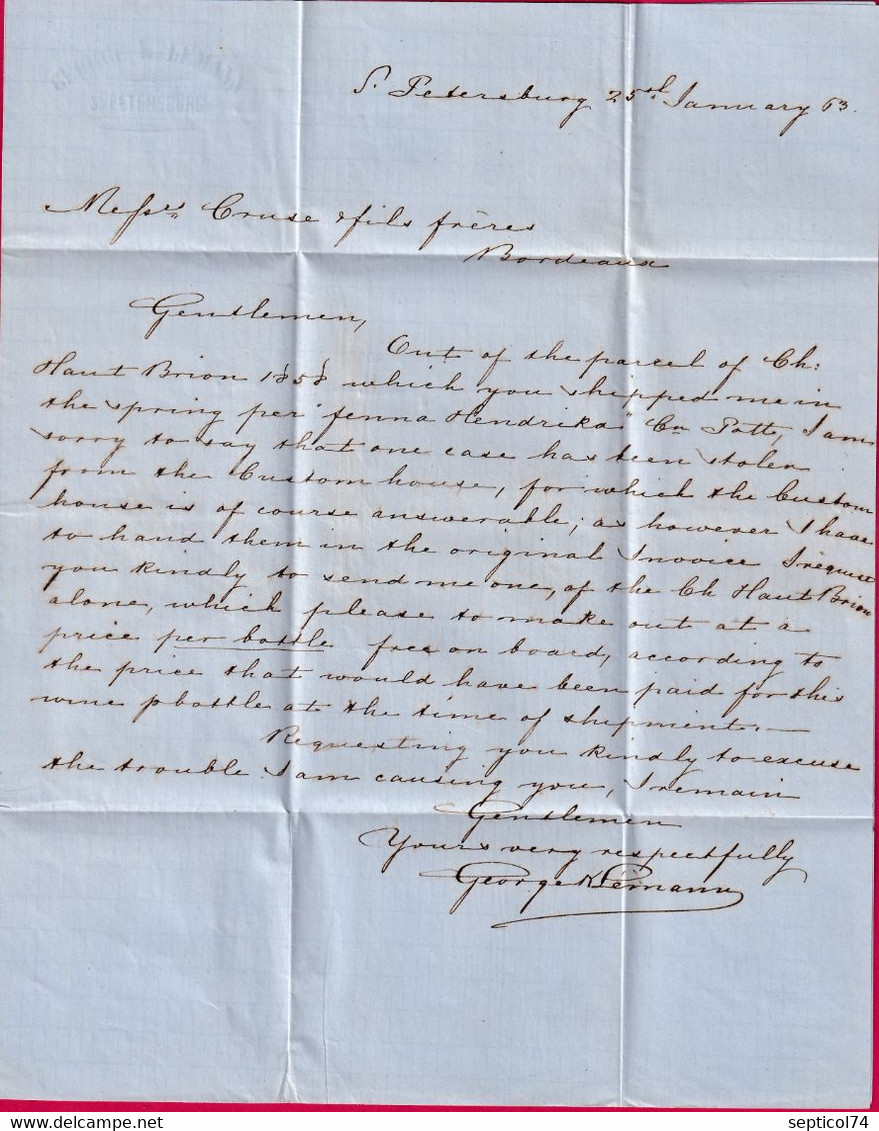 ST PETERSBURG
S. Petersburg 25th January 63.
Messrs Cruse & fils frères
Bordeaux
Gentlemen,
Out of the parcel of Ch:
Haut Brion 1858 which you shipped me in
the spring per "Jenna Hendrika" Cn Patt, I am
sorry to say that one case has been stolen
from the Custom house, for which the Custom
house is of course answerable; as however I have
to hand them in the original Invoice I request
you kindly to send me one, of the Ch Haut Brion
alone, which please to make out at a
price per bottle free on board, according to
the price that would have been paid for this
wine p bottle at the time of shipment. —
Requesting you kindly to excuse
the trouble I am causing you, I remain
Gentlemen
Yours very respectfully
George
delcampe.net
septicol74